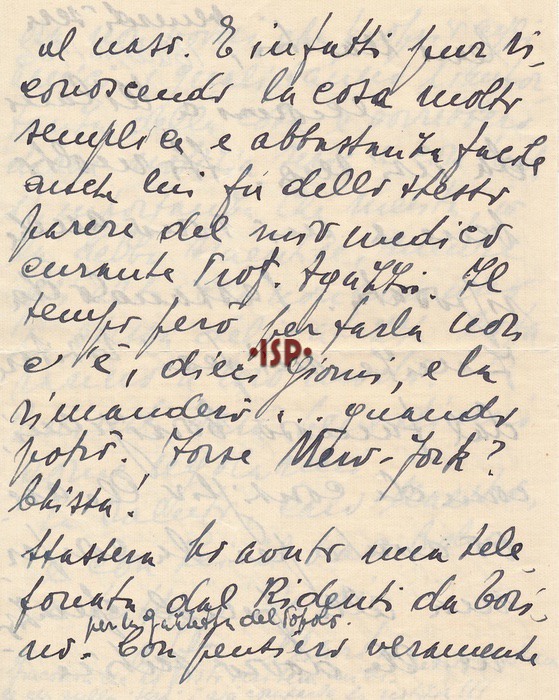 al naso. E infatti pur ri,
conoscendo la cosa molto
semplice e abbastanza facile
anche lui fu dello stesso
parere del mio medico
curante Prof. Agazzi. Il
tempo però per farla non
c'è, dieci giorni, e la
•ISP•
rimanderò .... quando
potrò! Forse New-York?
Chissà!
Stassera ho avuto una tele,
fonata dal Ridenti da Tori,
per la Gazzetta del Popolo.
no. Con pensiero veramente